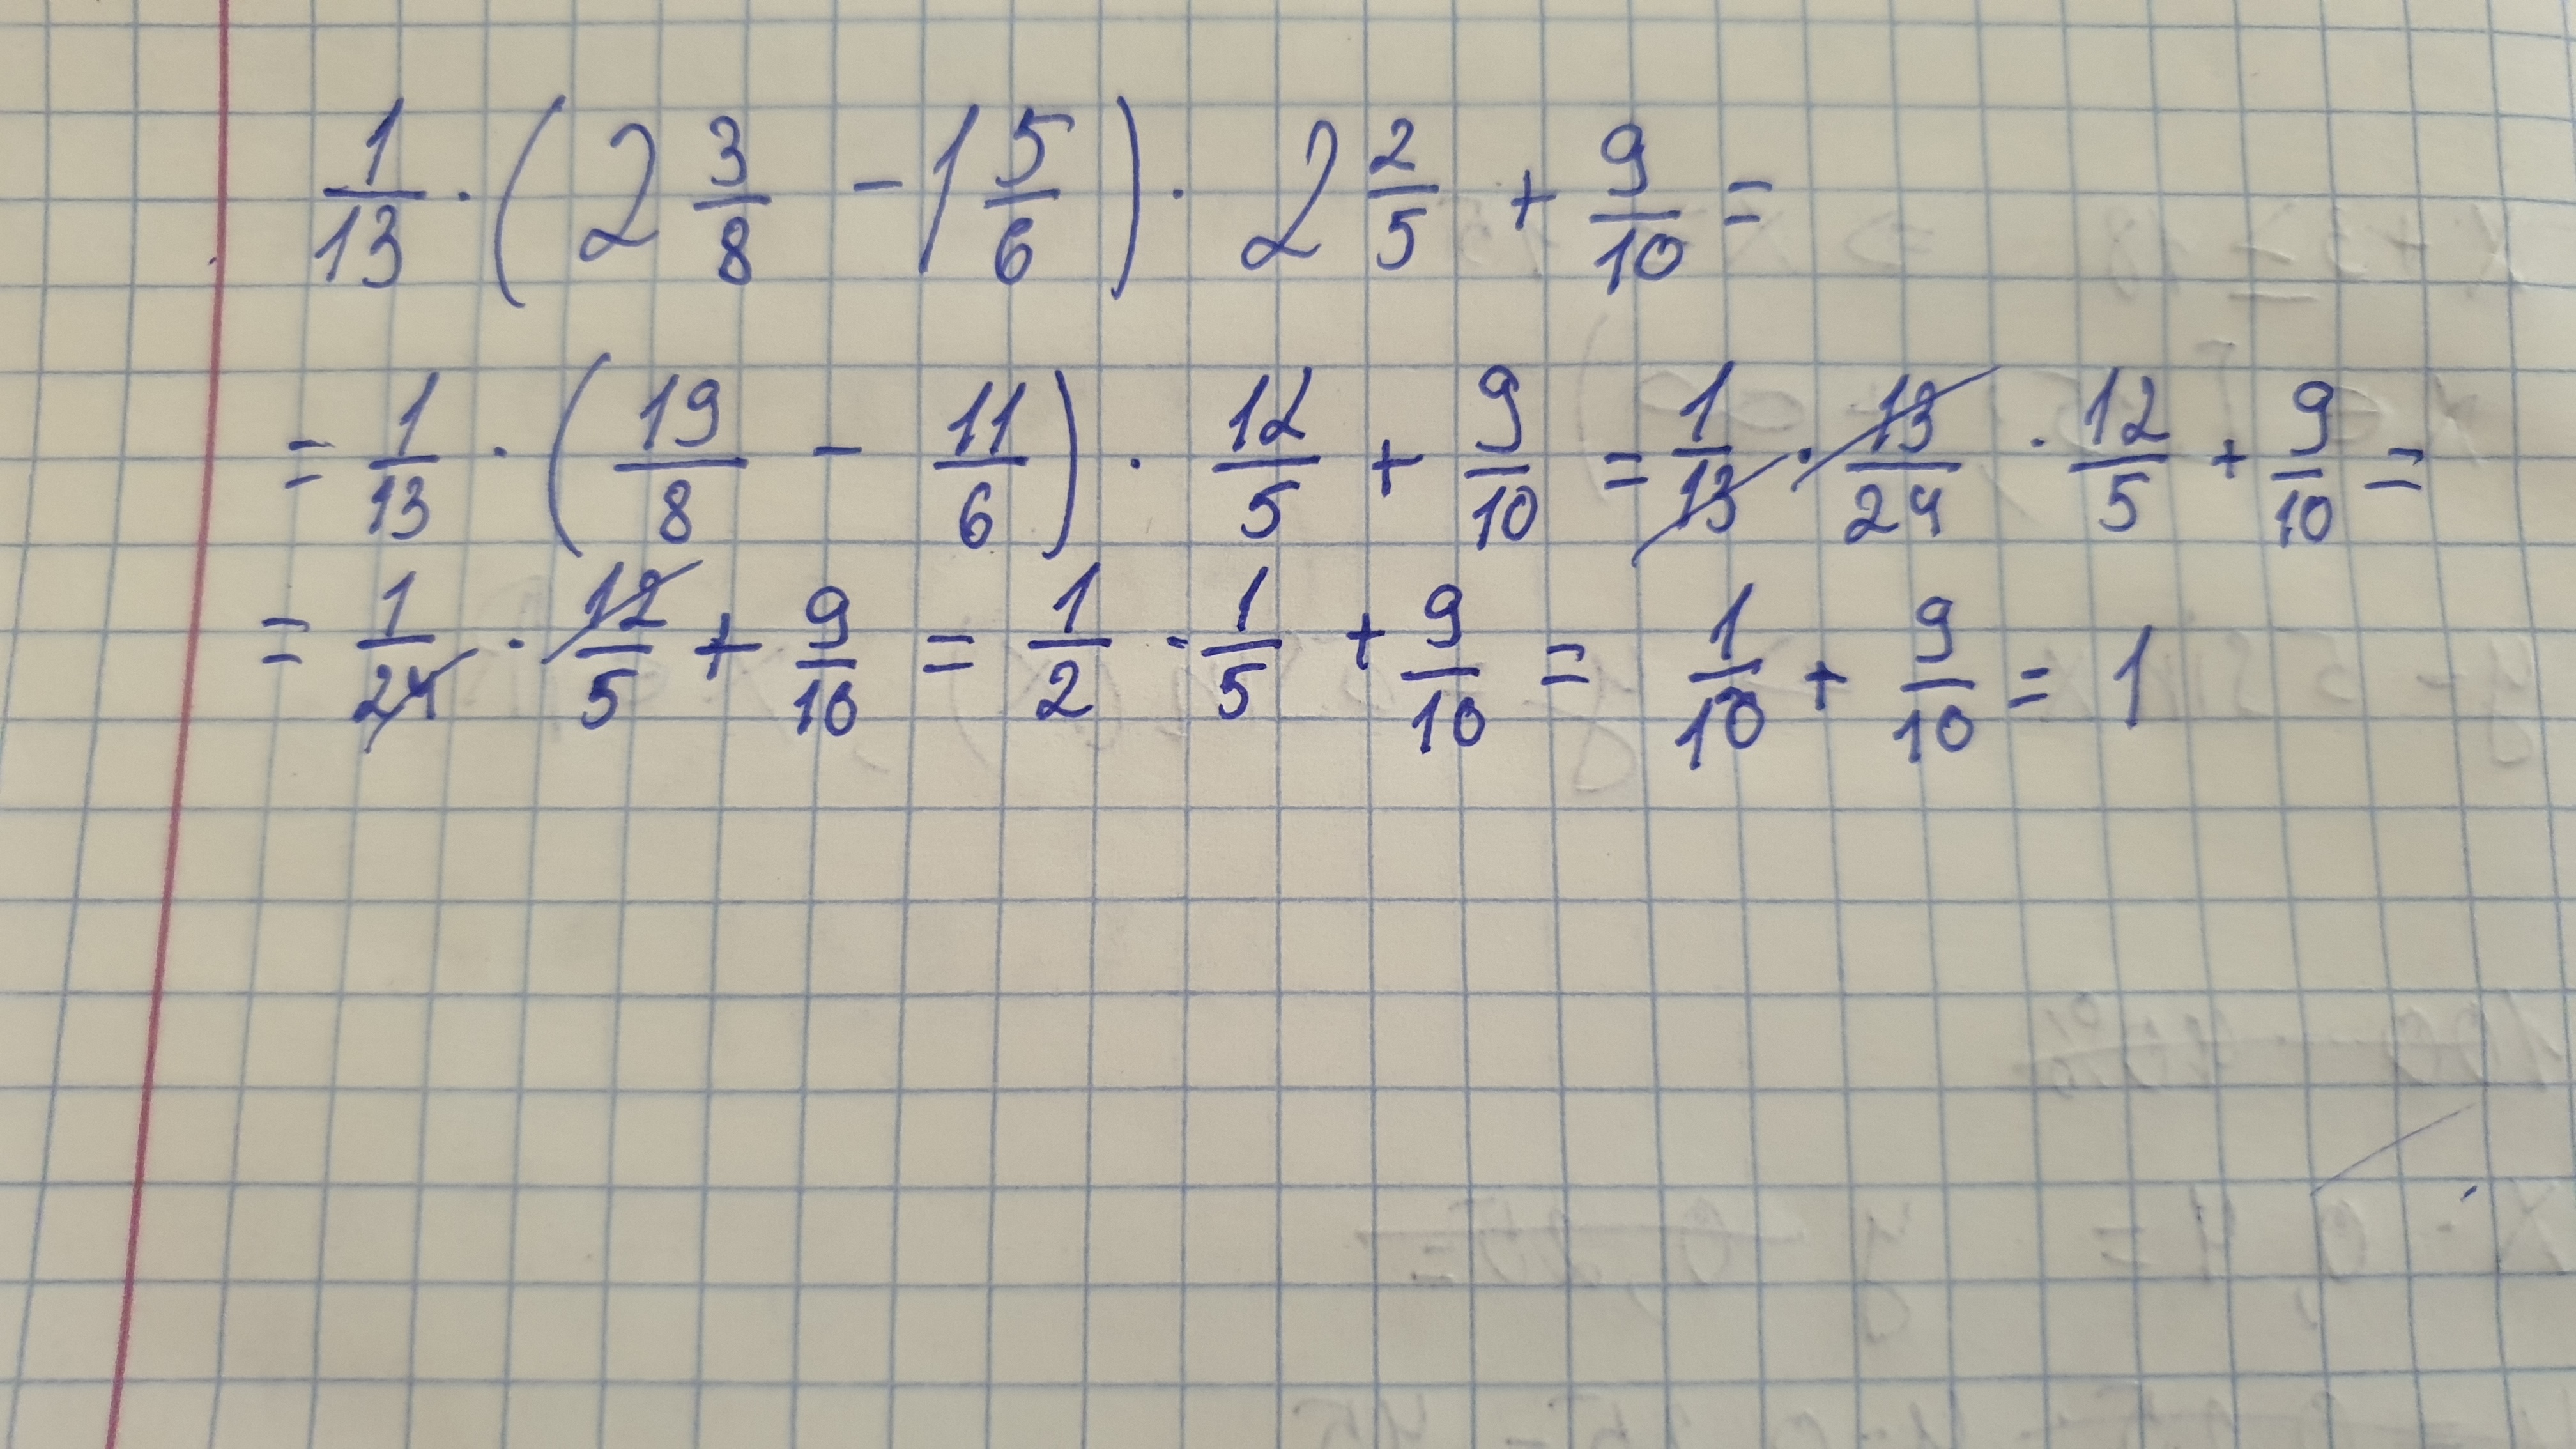 1/13 · (2 3/8 - 1 5/6) · 2 2/5 + 9/10 =
= 1/13 · (19/8 - 11/6) · 12/5 + 9/10 = 1/13 · 13/24 · 12/5 + 9/10 =
= 1/24 · 12/5 + 9/10 = 1/2 · 1/5 + 9/10 = 1/10 + 9/10 = 1